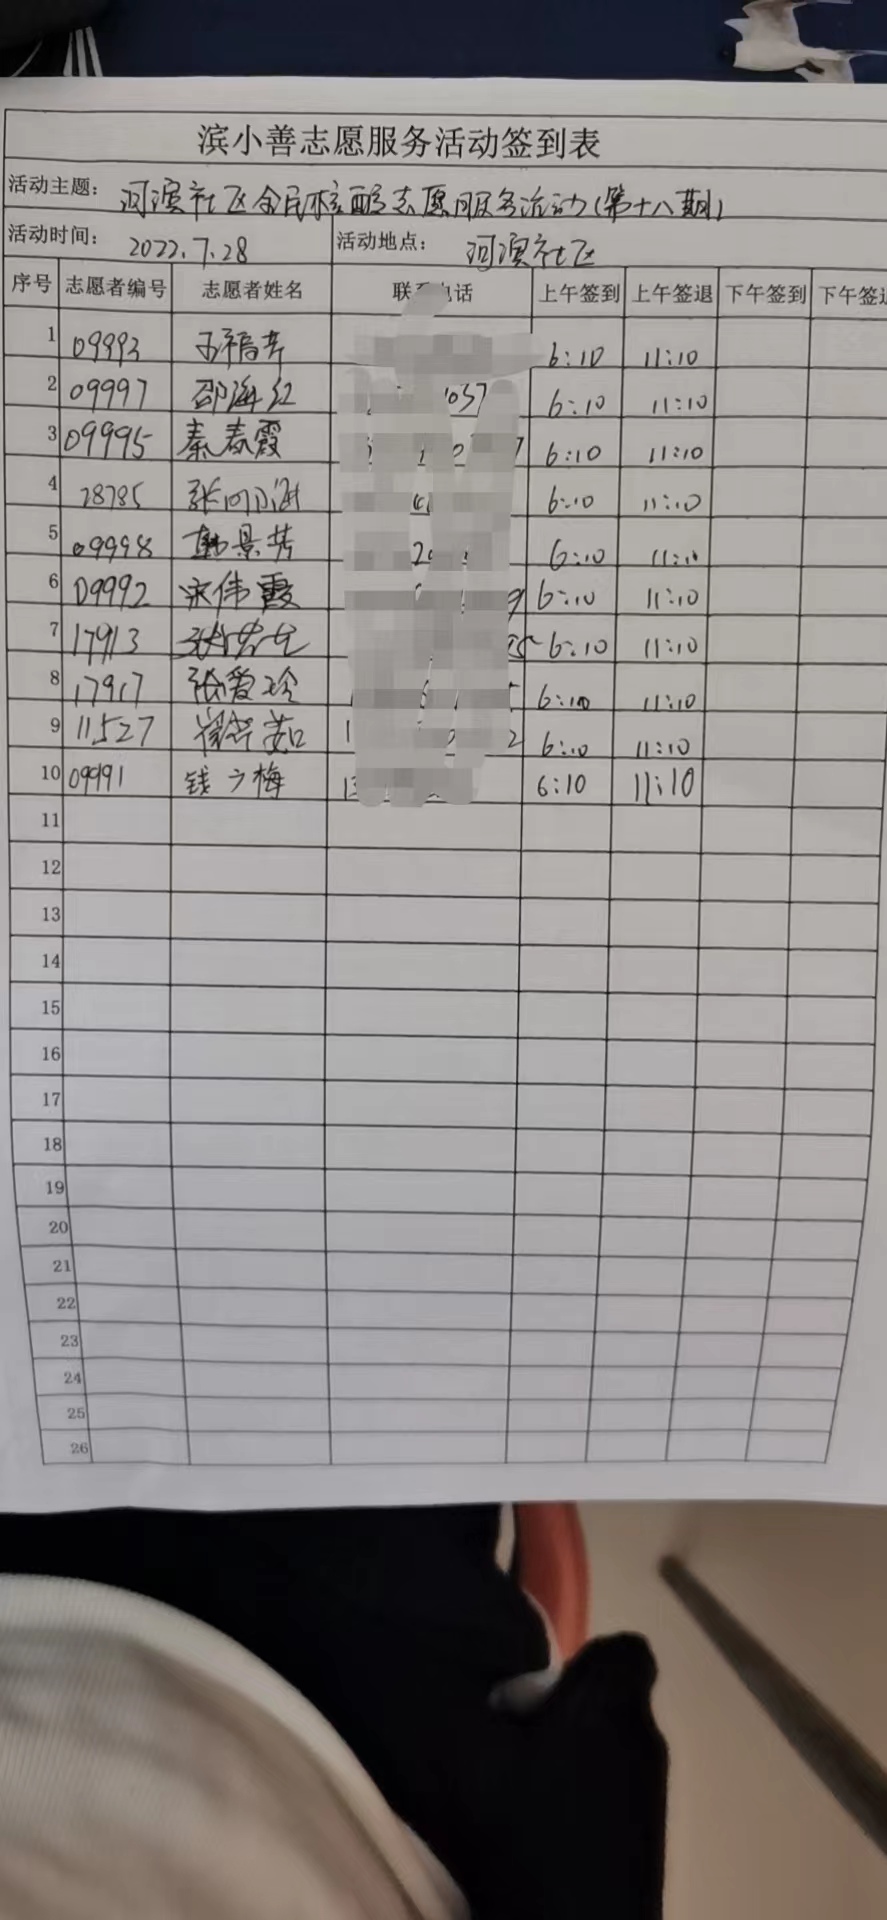 滨小善志愿服务活动签到表
活动主题： 河滨社区全民核酸志愿服务活动（第十八期）
活动时间： 2022.7.28 活动地点： 河滨社区
序号 志愿者编号 志愿者姓名 联系电话 上午签到 上午签退 下午签到 下午签退
1 09993 6:10 11:10
2 09997 邵海红 6:10 11:10
3 09995 秦春霞 6:10 11:10
4 28785 6:10 11:10
5 09998 韩景芳 6:10 11:10
6 09992 宋伟霞 6:10 11:10
7 17913 6:10 11:10
8 17917 张爱珍 6:10 11:10
9 11527 6:10 11:10
10 09991 6:10 11:10
11
12
13
14
15
16
17
18
19
20
21
22
23
24
25
26